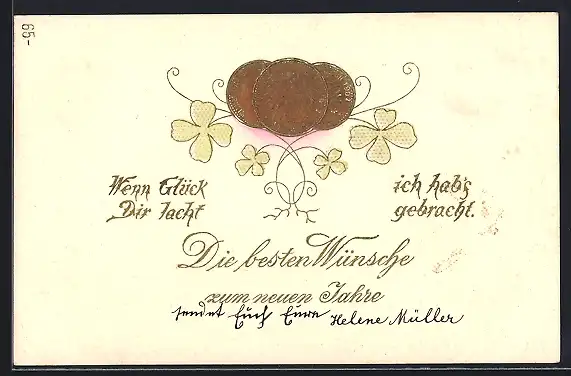 65-
Wenn Glück
Dir lacht
ich hab's
gebracht.
Die besten Wünsche
zum neuen Jahre
sendet Euch Eure Helene Müller